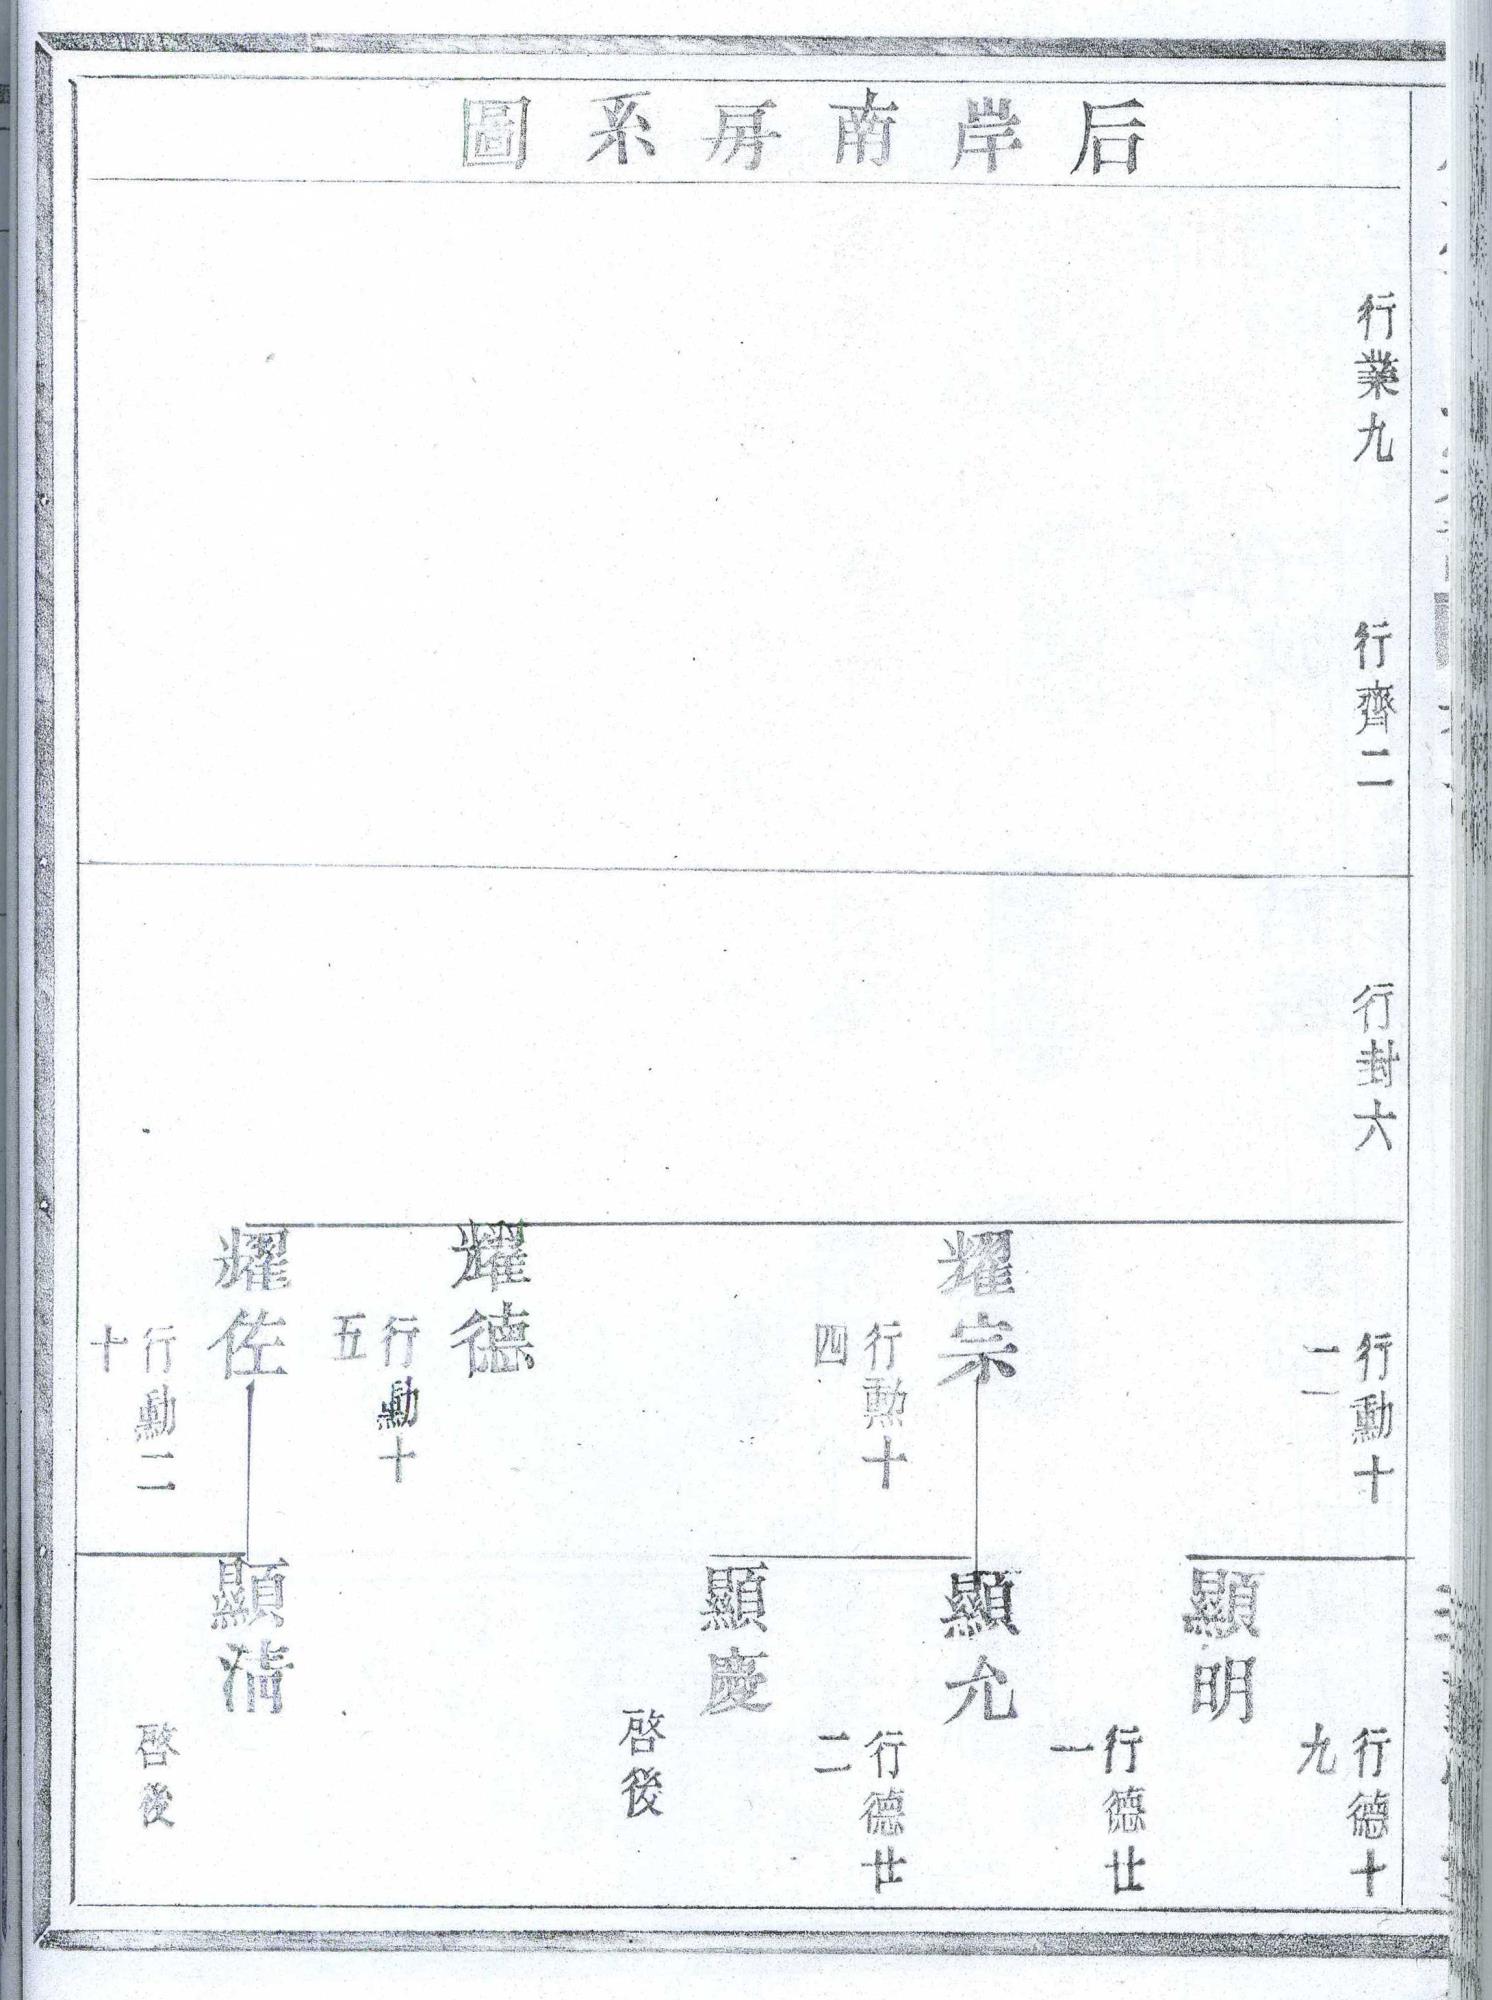 后岸南房系圖
行業九
行齊二
行封六
行勳十
二
耀宗
行勳十
四
耀德
行勳十
五
耀佐
行勳二
十
行德十
九
顯明
行德廿
一
顯允
行德廿
二
顯慶
啓後
顯清
啓後